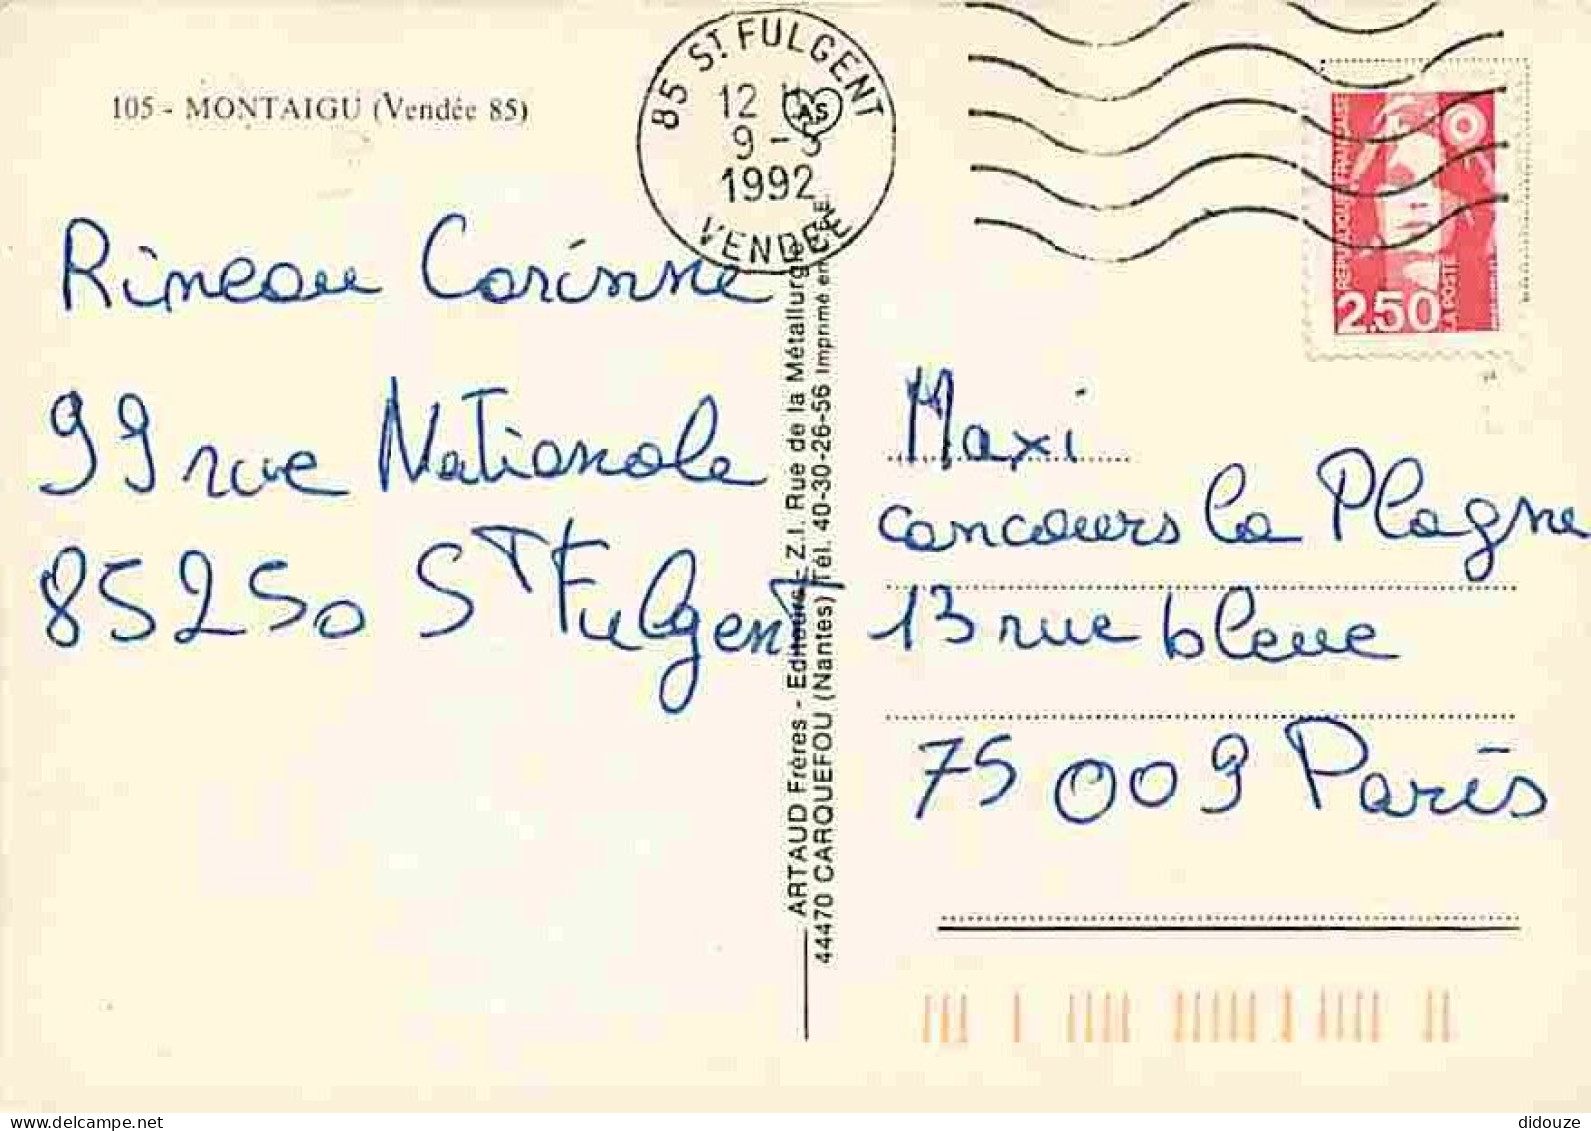 105 - MONTAIGU (Vendée 85)
85 ST FULGENT
12 H
9 - 3
1992
VENDEE
AS
REPUBLIQUE FRANÇAISE
2.50
LA POSTE
Rineau Corinne
99 rue Nationale
85250 ST Fulgent
ARTAUD Frères - Editeurs - Z.I. Rue de la Métallurgie
44470 CARQUEFOU (Nantes) Tél. 40-30-26-56 Imprimé en
Maxi
concours la Plagne
13 rue bleue
75009 Paris
didouze